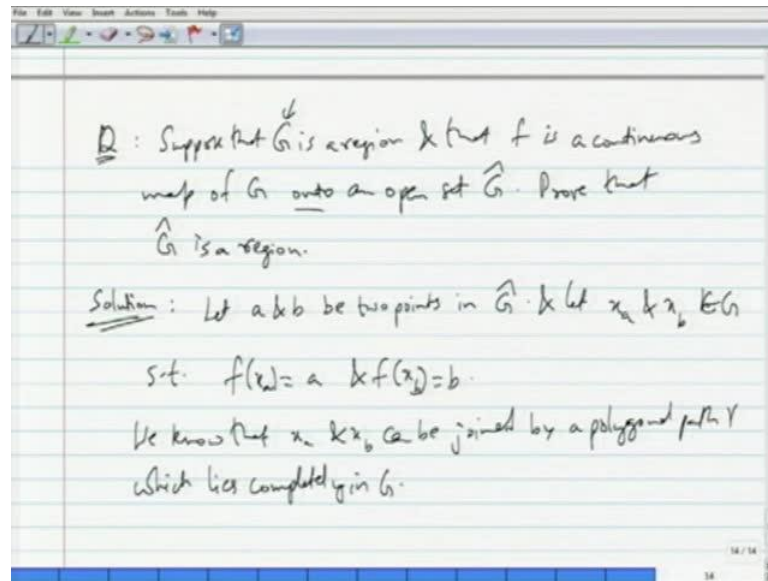 File Edit View Insert Actions Tools Help
Q : Suppose that G is a region & that f is a continuous
map of G onto an open set Ĝ. Prove that
Ĝ is a region.
Solution : Let a & b be two points in Ĝ. & let x_a & x_b ∈ G
s.t. f(x_a) = a & f(x_b) = b.
We know that x_a & x_b can be joined by a polygonal path γ
which lies completely in G.
14 / 14
14